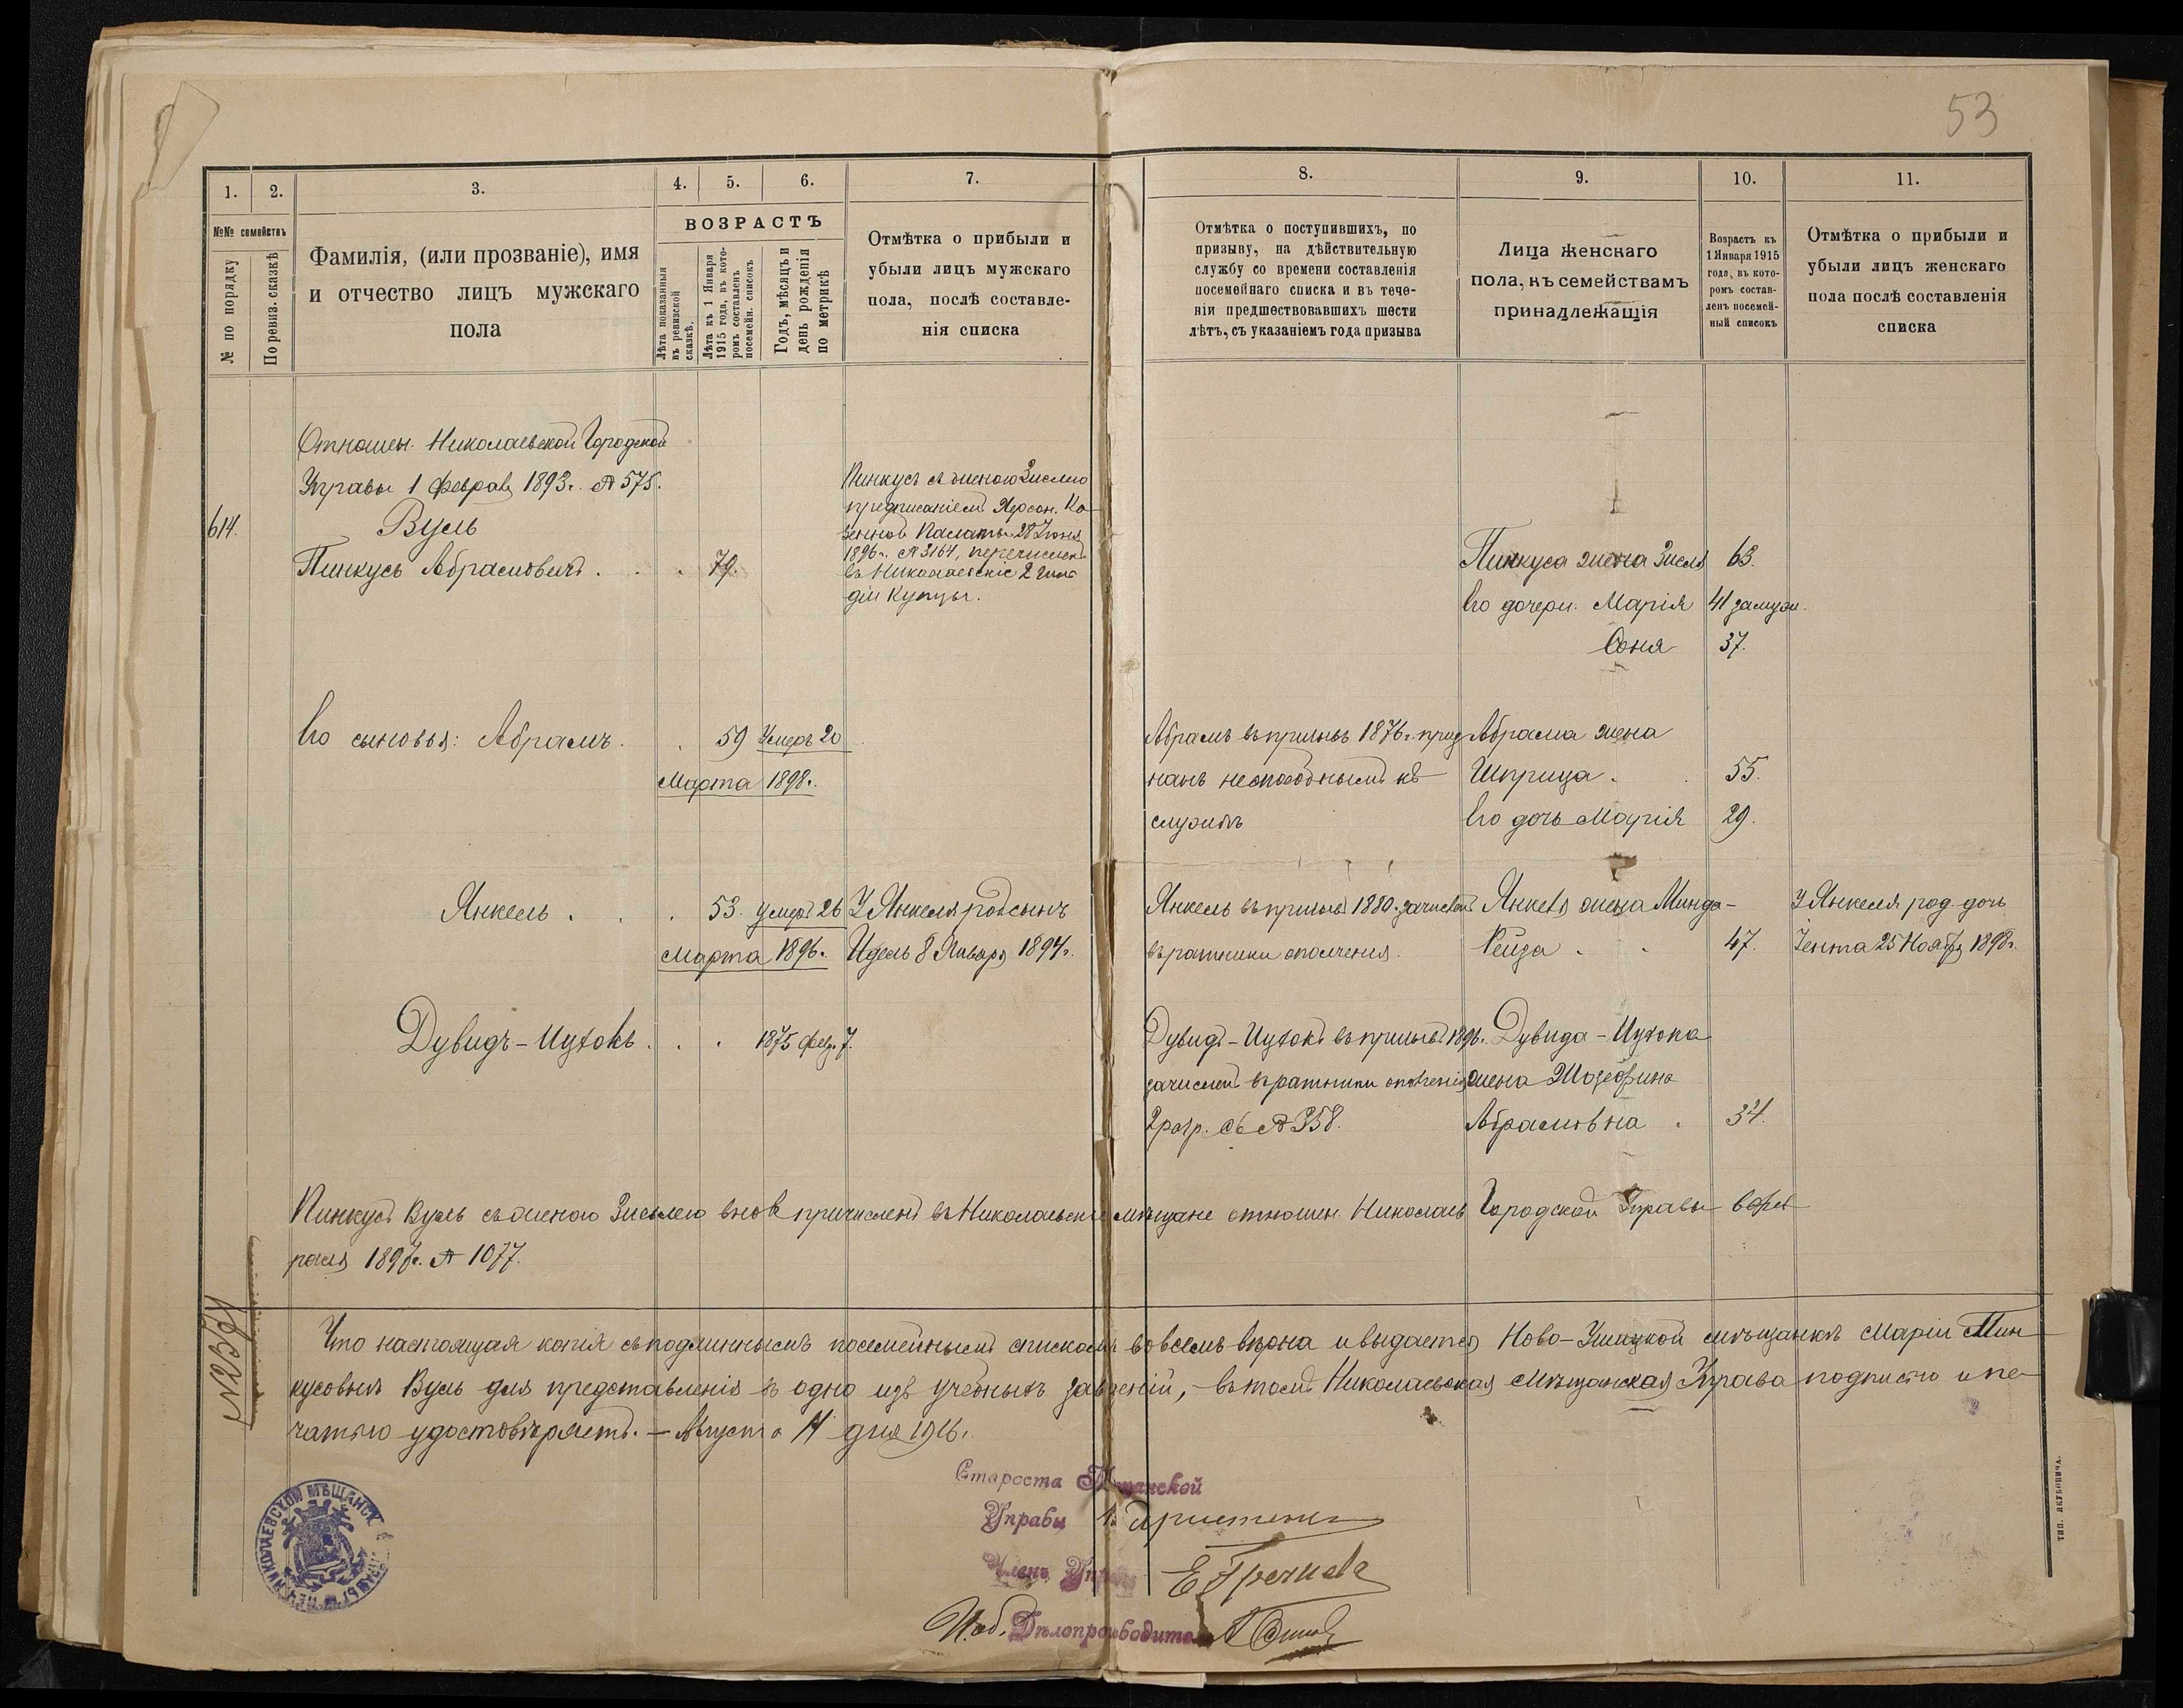 53
1.
2.
3.
4.
5.
6.
7.
8.
9.
10.
11.
№№ семействъ
№ по порядку
По ревиз. сказкѣ
Фамилія, (или прозваніе), имя
и отчество лицъ мужскаго
пола
ВОЗРАСТЪ
Лѣта показанныя
въ ревизской
сказкѣ.
Лѣта къ 1 Января
1915 года, въ кото-
ромъ составленъ
посемейн. списокъ
Годъ, мѣсяцъ и
день рожденія
по метрикѣ
Отмѣтка о прибыли и
убыли лицъ мужскаго
пола, послѣ составле-
нія списка
Отмѣтка о поступившихъ, по
призыву, на дѣйствительную
службу со времени составленія
посемейнаго списка и въ тече-
ніи предшествовавшихъ шести
лѣтъ, съ указаніемъ года призыва
Лица женскаго
пола, къ семействамъ
принадлежащія
Возрастъ къ
1 Января 1915
года, въ кото-
ромъ состав-
ленъ посемей-
ный списокъ
Отмѣтка о прибыли и
убыли лицъ женскаго
пола послѣ составленія
списка
Отношен. Николаевской Городской
Управы 1 Февраля 1893 г. № 575.
614.
Вуль
Пинкусъ Абрамовичъ . . . 79.
Пинкусъ съ женою Зислею
предписаніемъ Херсон. Ка-
зенной Палаты 28 Іюня
1896 г. № 3164, перечислены
въ Николаевскіе 2 гиль
діи Купцы.
Пинкуса жена Зисля 63.
Его дочери: Марія 41 замуж.
Соня 37.
Его сыновья: Абрамъ . . 59 Умеръ 20
Марта 1898 г.
Абрамъ въ призывъ 1876 г. приз
нанъ неспособнымъ къ
службѣ
Абрама жена
Шприца . . 55.
Его дочь Марія 29.
Янкель . . . 53. умеръ 26
Марта 1896 г.
У Янкеля род. сынъ
Идель 8 Января 1894 г.
Янкель въ призывъ 1880 г. зачисленъ
въ ратники ополченія.
Янкеля жена Минда-
Рейза . . 47.
У Янкеля род. дочь
Зента 25 Ноября 1898 г.
Дувидъ-Ицхокъ . . . 1875 фев. 7.
Дувидъ-Ицхокъ въ призывъ 1896 г.
зачисленъ въ ратники ополченія
2 разр. съ № 358.
Дувида-Ицхока
жена Жозефина
Абрамовна . 34.
Пинкусъ Вуль съ женою Зислею вновь причислены въ Николаевскіе мѣщане отношен. Николаев Городской Управы 6 Фев
раля 1897 г. № 1077.
Что настоящая копія съ подлиннымъ посемейнымъ спискомъ во всемъ вѣрна и выдается Ново-Ушицкой мѣщанкѣ Маріи Пин
кусовнѣ Вуль для представленія въ одно изъ учебныхъ заведеній, - въ томъ Николаевская Мѣщанская Управа подписью и пе-
чатью удостовѣряетъ. - Августа 11 дня 1916 г.
Староста Мѣщанской
Управы
Членъ Управы
И. об. Дѣлопроизводителя
НИКОЛАЕВСКОЙ МѢЩАНСК. УПРАВЫ
ТИП. ЯКУБОВИЧА.